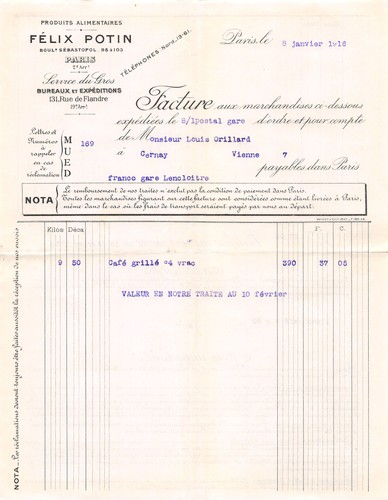 PRODUITS ALIMENTAIRES
FÉLIX POTIN
BOULD SÉBASTOPOL 95 A 103
PARIS
2e Arrt
TÉLÉPHONES Nord. 13-61.
Service du Gros
BUREAUX ET EXPÉDITIONS
131, Rue de Flandre
19e Arrt
Paris, le 8 janvier 1916
Facture aux marchandises ci-dessous
expédiées le 8/1postal gare d'ordre et pour compte
Lettres et
Numéros
à
rappeler
en cas de
réclamation
M
U
E
D
169
de Monsieur Louis Orillard
à Cernay Vienne 7
payables dans Paris
franco gare Lencloitre
NOTA
Le remboursement de nos traites n'exclut pas la condition de paiement dans Paris.
Toutes les marchandises figurant sur cette facture sont considérées comme étant livrées à Paris,
même dans le cas où les frais de transport seraient payés par nous au départ.
Kilos Déca F. C.
9 50 Café grillé °4 vrac 390 37 05
VALEUR EN NOTRE TRAITE AU 10 février
NOTA._Les réclamations devront toujours être faites aussitôt la réception de nos envois